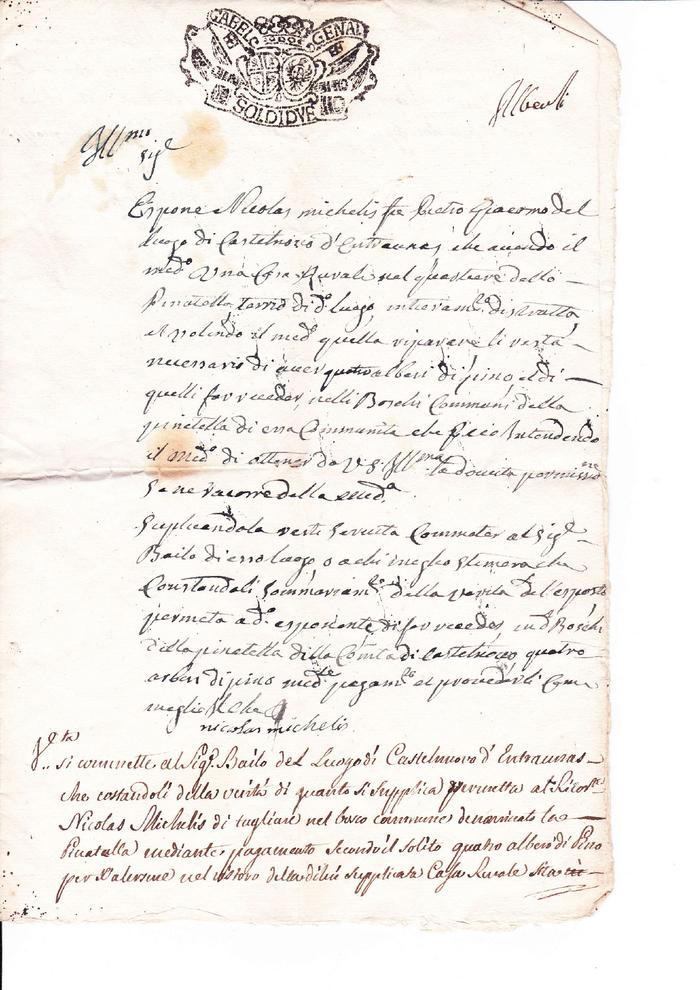 GABEL GENAL
SOLDI DVE
Alberti
Ill.mo
Sig.e
Espone Nicolas michelis fu Pietro Giacomo del
luogo di Castelnovo d'Entraunas che avendo il
med.o Una Casa Rurale nel quartiere dello
Pinatella territ.o di d.o luogo intieram.te distrutta
et volendo il med.o quella riparare li resta
necessario di aver quatro alberi di pino e di
quelli far recider nelli Boschi Communi della
pinatella di essa Communita che perciò Intendendo
il med.o di ottener da V.S. Ill.ma la dovuta permiss.ne
Se ne racorre dalla med.a
Suplicandola resti Servita Commeter al Sig.r
Bailo di esso luogo o a chi meglio stimera che
Constandoli Sommariam.te della verita dell'esposto
permeta a d.o esponente di far recider in d.i Boschi
della pinatella della Com.ta di Castelnovo quatro
arberi di pino med.te pagam.to et provederli Come
meglio Il che
nicolas michelis
V.ta
si commette al Sig.r Bailo del Luogo di Castelnuovo d'Entraunas
che costandoli della verità di quanto si supplica permetta al Ricor.te
Nicolas Michelis di tagliare nel bosco commune denominato la
Pinatella mediante pagamento secondo il solito quatro alberi di Pino
per valersene nel ristoro della di lui supplicata Casa Rurale